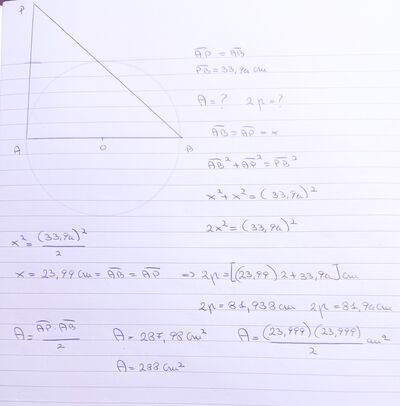 P
A
O
B
AP = AB
PB = 33,94 cm
A = ? 2p = ?
AB = AP = x
AB² + AP² = PB²
x² + x² = (33,94)²
2x² = (33,94)²
x² = (33,94)² / 2
x = 23,99 cm = AB = AP ⇒ 2p = [(23,99) 2 + 33,94] cm
2p = 81,938 cm 2p = 81,94 cm
A = AP · AB / 2 A = 287,98 cm² A = (23,999) (23,999) / 2 cm²
A = 288 cm²